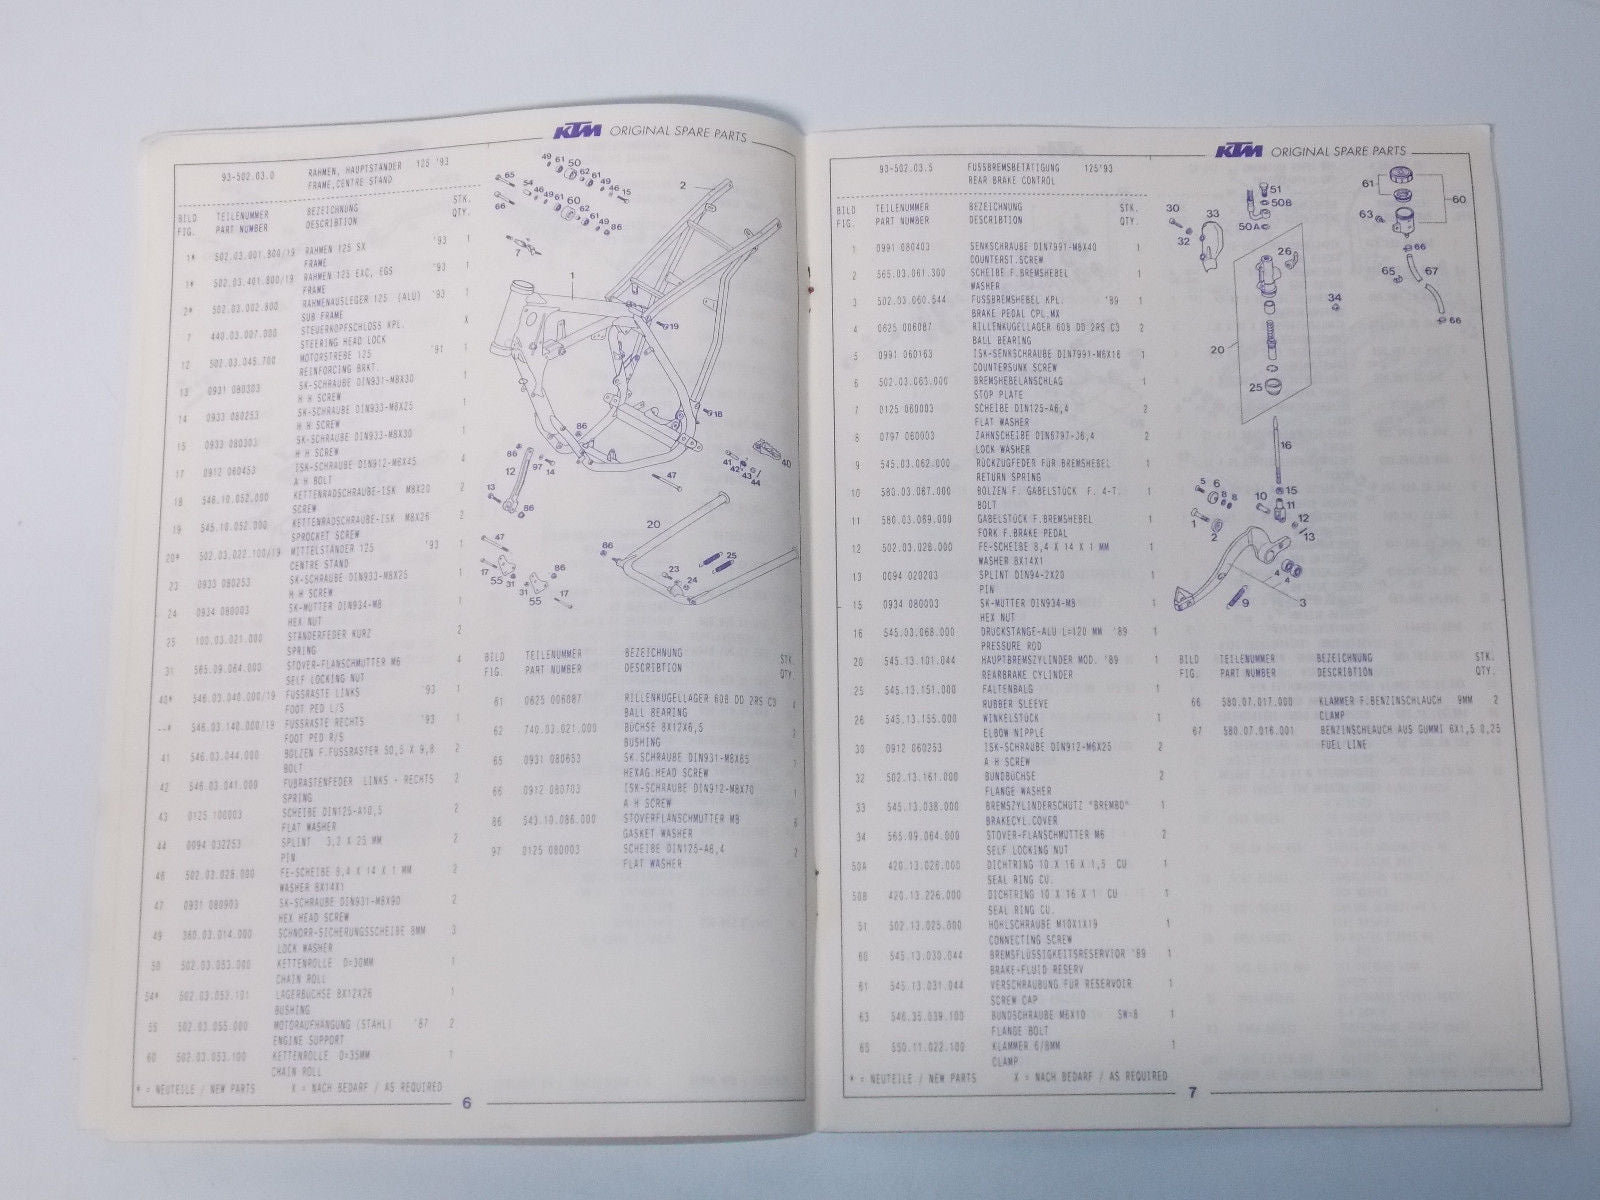 KTM ORIGINAL SPARE PARTS
93-502.03.0 RAHMEN, HAUPTSTÄNDER 125 '93
FRAME,CENTRE STAND
BILD TEILENUMMER BEZEICHNUNG STK.
FIG. PART NUMBER DESCRIBTION QTY.
1* 502.03.001.800/19 RAHMEN 125 SX '93 1
FRAME
1* 502.03.401.800/19 RAHMEN 125 EXC, EGS '93 1
FRAME
2* 502.03.002.800 RAHMENAUSLEGER 125 (ALU) '93 1
SUB FRAME
7 440.03.007.000 STEUERKOPFSCHLOSS KPL. X
STEERING HEAD LOCK
12 502.03.045.700 MOTORSTREBE 125 '91 1
REINFORCING BRKT.
13 0931 080303 SK-SCHRAUBE DIN931-M8X30 1
H H SCREW
14 0933 080253 SK-SCHRAUBE DIN933-M8X25 1
H H SCREW
15 0933 080303 SK-SCHRAUBE DIN933-M8X30 1
H H SCREW
17 0912 060453 ISK-SCHRAUBE DIN912-M6X45 4
A H BOLT
18 546.10.052.000 KETTENRADSCHRAUBE-ISK M8X20 2
SCREW
19 545.10.052.000 KETTENRADSCHRAUBE-ISK M8X26 2
SPROCKET SCREW
20* 502.03.022.100/19 MITTELSTÄNDER 125 '93 1
CENTRE STAND
23 0933 080253 SK-SCHRAUBE DIN933-M8X25 1
H H SCREW
24 0934 080003 SK-MUTTER DIN934-M8 1
HEX NUT
25 100.03.021.000 STÄNDERFEDER KURZ 2
SPRING
31 565.09.064.000 STOVER-FLANSCHMUTTER M6 4
SELF LOCKING NUT
40* 546.03.040.000/19 FUSSRASTE LINKS '93 1
FOOT PED L/S
--* 546.03.140.000/19 FUSSRASTE RECHTS '93 1
FOOT PED R/S
41 546.03.044.000 BOLZEN F.FUSSRASTER 50,5 X 9,8 2
BOLT
42 546.03.041.000 FUßRASTENFEDER LINKS - RECHTS 2
SPRING
43 0125 100003 SCHEIBE DIN125-A10,5 2
FLAT WASHER
44 0094 032253 SPLINT 3,2 X 25 MM 2
PIN
46 502.03.028.000 FE-SCHEIBE 8,4 X 14 X 1 MM 2
WASHER 8X14X1
47 0931 080903 SK-SCHRAUBE DIN931-M8X90 2
HEX HEAD SCREW
49 360.03.014.000 SCHNORR-SICHERUNGSSCHEIBE 8MM 3
LOCK WASHER
50 502.03.053.000 KETTENROLLE D=30MM 1
CHAIN ROLL
54* 502.03.053.101 LAGERBÜCHSE 8X12X26 1
BUSHING
55 502.03.055.000 MOTORAUFHÄNGUNG (STAHL) '87 2
ENGINE SUPPORT
60 502.03.053.100 KETTENROLLE D=35MM 1
CHAIN ROLL
* = NEUTEILE / NEW PARTS X = NACH BEDARF / AS REQUIRED
BILD TEILENUMMER BEZEICHNUNG STK.
FIG. PART NUMBER DESCRIBTION QTY.
61 0625 006087 RILLENKUGELLAGER 608 DD 2RS C3 4
BALL BEARING
62 740.03.021.000 BÜCHSE 8X12X6,5
BUSHING
65 0931 080653 SK.SCHRAUBE DIN931-M8X65
HEXAG.HEAD SCREW
66 0912 080703 ISK-SCHRAUBE DIN912-M8X70
A H SCREW
86 543.10.086.000 STOVERFLANSCHMUTTER M8 6
GASKET WASHER
97 0125 080003 SCHEIBE DIN125-A8,4 2
FLAT WASHER
6
KTM ORIGINAL SPARE PARTS
93-502.03.5 FUSSBREMSBETÄTIGUNG 125'93
REAR BRAKE CONTROL
BILD TEILENUMMER BEZEICHNUNG STK.
FIG. PART NUMBER DESCRIBTION QTY.
1 0991 080403 SENKSCHRAUBE DIN7991-M8X40 1
COUNTERST.SCREW
2 565.03.061.300 SCHEIBE F.BREMSHEBEL 1
WASHER
3 502.03.060.544 FUSSBREMSHEBEL KPL. '89 1
BRAKE PEDAL CPL.MX
4 0625 006087 RILLENKUGELLAGER 608 DD 2RS C3 2
BALL BEARING
5 0991 060163 ISK-SENKSCHRAUBE DIN7991-M6X16 1
COUNTERSUNK SCREW
6 502.03.063.000 BREMSHEBELANSCHLAG 1
STOP PLATE
7 0125 060003 SCHEIBE DIN125-A6,4 2
FLAT WASHER
8 0797 060003 ZAHNSCHEIBE DIN6797-J6,4 2
LOCK WASHER
9 545.03.062.000 RÜCKZUGFEDER FÜR BREMSHEBEL 1
RETURN SPRING
10 580.03.087.000 BOLZEN F. GABELSTÜCK F. 4-T. 1
BOLT
11 580.03.089.000 GABELSTÜCK F.BREMSHEBEL 1
FORK F.BRAKE PEDAL
12 502.03.028.000 FE-SCHEIBE 8,4 X 14 X 1 MM 1
WASHER 8X14X1
13 0094 020203 SPLINT DIN94-2X20 1
PIN
15 0934 080003 SK-MUTTER DIN934-M8 1
HEX NUT
16 545.03.068.000 DRUCKSTANGE-ALU L=120 MM '89 1
PRESSURE ROD
20 545.13.101.044 HAUPTBREMSZYLINDER MOD. '89 1
REARBRAKE CYLINDER
25 545.13.151.000 FALTENBALG 1
RUBBER SLEEVE
26 545.13.155.000 WINKELSTÜCK 1
ELBOW NIPPLE
30 0912 060253 ISK-SCHRAUBE DIN912-M6X25 2
A H SCREW
32 502.13.161.000 BUNDBÜCHSE 2
FLANGE WASHER
33 545.13.038.000 BREMSZYLINDERSCHUTZ "BREMBO" 1
BRAKECYL.COVER
34 565.09.064.000 STOVER-FLANSCHMUTTER M6 2
SELF LOCKING NUT
50A 420.13.026.000 DICHTRING 10 X 16 X 1,5 CU 1
SEAL RING CU.
50B 420.13.226.000 DICHTRING 10 X 16 X 1 CU 1
SEAL RING CU.
51 502.13.025.000 HOHLSCHRAUBE M10X1X19 1
CONNECTING SCREW
60 545.13.030.044 BREMSFLÜSSIGKEITSRESERVIOR '89 1
BRAKE-FLUID RESERV
61 545.13.031.044 VERSCHRAUBUNG FÜR RESERVOIR 1
SCREW CAP
63 546.35.039.100 BUNDSCHRAUBE M6X10 SW=8 1
FLANGE BOLT
65 550.11.022.100 KLAMMER 6/8MM 1
CLAMP
* = NEUTEILE / NEW PARTS X = NACH BEDARF / AS REQUIRED
BILD TEILENUMMER BEZEICHNUNG STK.
FIG. PART NUMBER DESCRIBTION QTY.
66 580.07.017.000 KLAMMER F.BENZINSCHLAUCH 9MM 2
CLAMP
67 580.07.016.001 BENZINSCHLAUCH AUS GUMMI 6X1,5 0,25
FUEL LINE
7